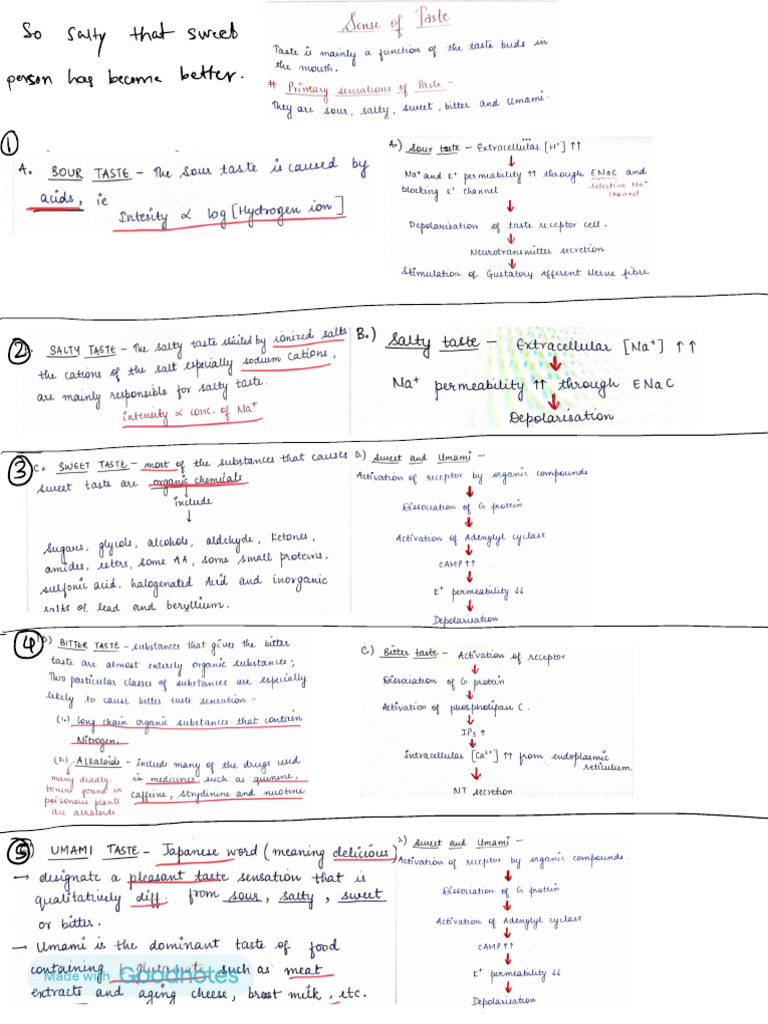 So salty that sweet
person has become better.
Sense of Taste
Taste is mainly a function of the taste buds in
the mouth.
# Primary sensations of Taste -
They are sour, salty, sweet, bitter and Umami.
1
A. SOUR TASTE - The sour taste is caused by
acids, ie
Intesity ∝ log [Hydrogen ion]
A.) Sour taste - Extracellular [H⁺] ↑↑
↓
Na⁺ and K⁺ permability ↑↑ through ENaC and
blocking K⁺ channel
selective Na⁺
channel
↓
Depolarisation of taste receptor cell.
↓
Neurotransmitter secretion
↓
Stimulation of Gustatory Afferent Nerve fibre
2
SALTY TASTE - The salty taste elicited by ionized salts
the cations of the salt especially sodium cations,
are mainly responsible for salty taste.
intensity ∝ conc. of Na⁺
B.) Salty taste - Extracellular [Na⁺] ↑↑
↓
Na⁺ permeability ↑↑ through ENaC
↓
Depolarisation
3
C. SWEET TASTE - most of the substances that causes
sweet taste are organic chemicals
include
↓
Sugars, glycols, alcohols, aldehyde, ketones,
amides, esters, some AA, some small proteins,
sulfonic acid, halogenated Acid and inorganic
salts of lead and beryllium.
D.) Sweet and Umami -
Activation of receptor by organic compounds
↓
Dissociation of G protein
↓
Activation of Adenylyl cyclase
↓
CAMP ↑↑
↓
K⁺ permeability ↓↓
↓
Depolarisation
4
D) BITTER TASTE - substances that gives the bitter
taste are almost entirely organic substances;
Two particular classes of substances are especially
likely to cause bitter taste sensation -
(1.) long chain organic substances that contain
Nitrogen.
(2.) Alkaloids - include many of the drugs used
in medicines such as quinine,
caffeine, strydinine and nicotine
many deadly
toxins found in
poisonous plants
are alkaloids
C.) Bitter taste - Activation of receptor
↓
Dissociation of G protein
↓
Activation of phospholipase C.
↓
IP₃ ↑
↓
intracellular [Ca²⁺] ↑↑ from endoplasmic
reticulum.
↓
NT secretion
5
UMAMI TASTE - Japanese word (meaning delicious)
→ designate a pleasant taste sensation that is
qualitatively diff. from sour, salty, sweet
or bitter.
→ Umami is the dominant taste of food
containing L-glutamate such as meat
extracts and aging cheese, breast milk, etc.
Made with Goodnotes
) Sweet and Umami -
Activation of receptor by organic compounds.
↓
Dissociation of G protein
↓
Activation of Adenylyl cyclase
↓
CAMP ↑↑
↓
K⁺ permeability ↓↓
↓
Depolarisation